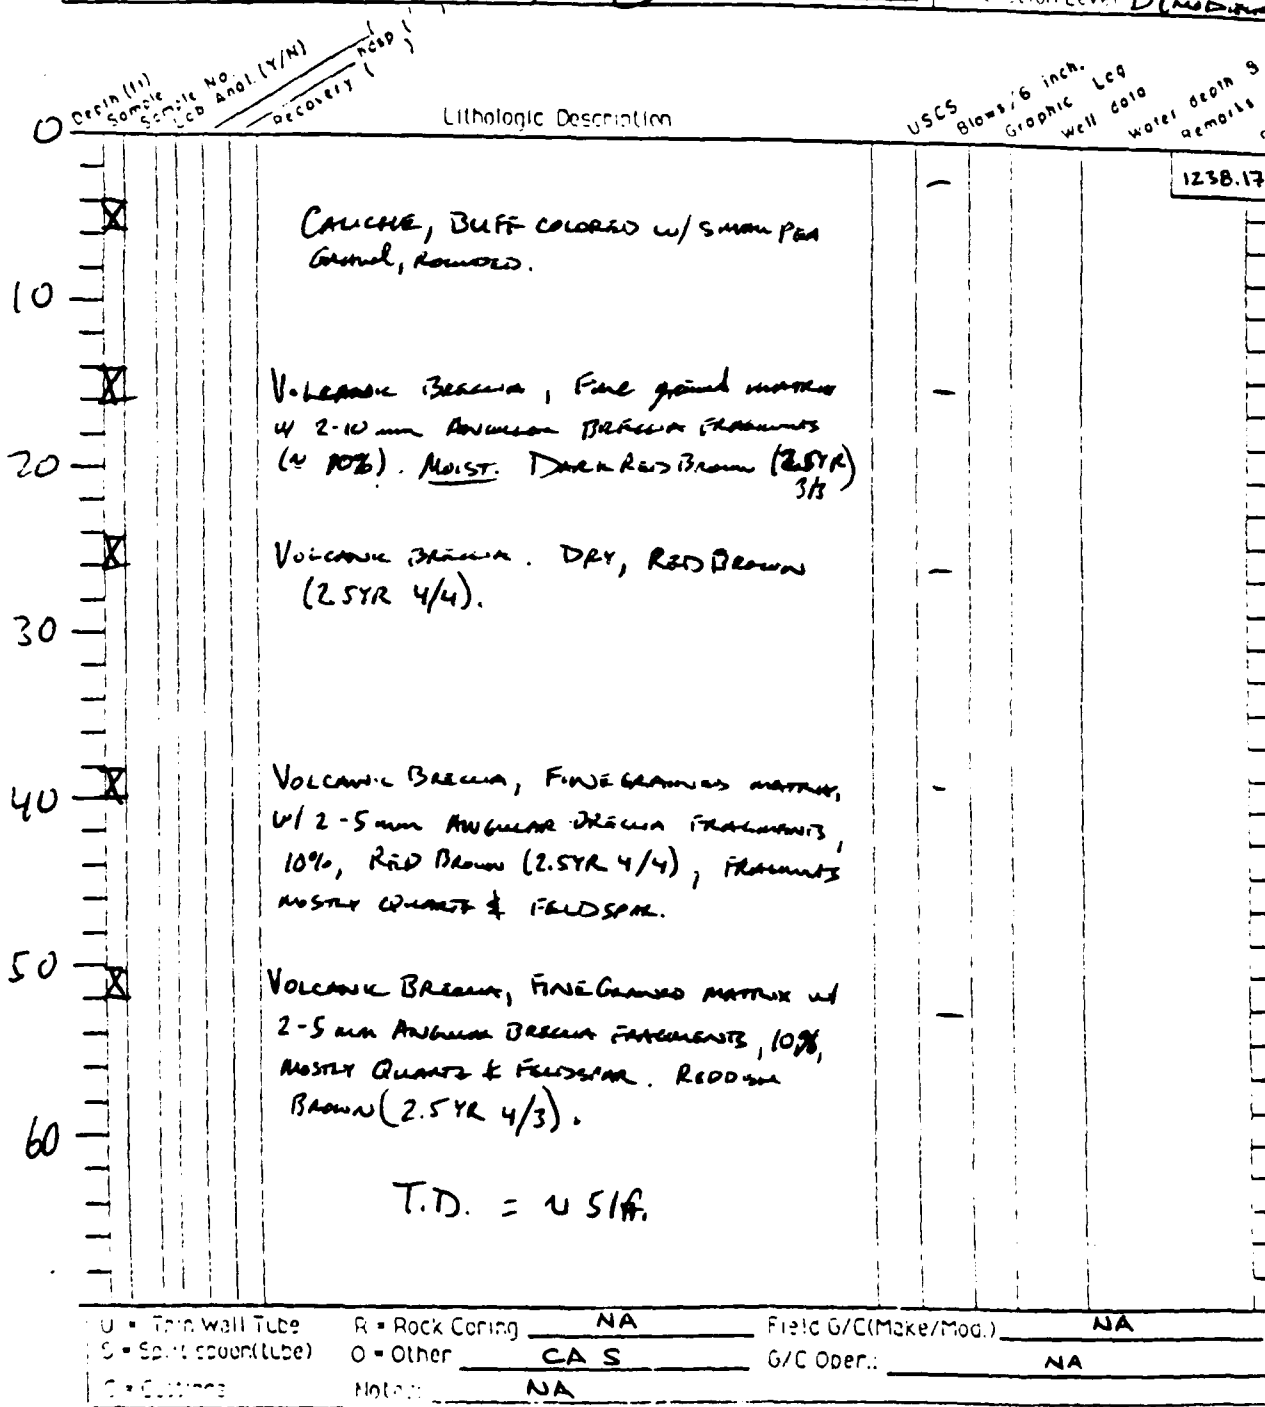 Depth (ft)
Sample
Sample No.
Lab Anal. (Y/N)
Recovery (
Lithologic Description
USCS
Blows/6 inch.
Graphic Log
Well data
Water depth
Remarks
0
1238.17
CALICHE, BUFF COLORED w/ SMALL PEA
Gravel, ROUNDED.
10
VOLCANIC BRECCIA, Fine grained MATRIX
w/ 2-10 mm ANGULAR BRECCIA FRAGMENTS
(~ 10%). MOIST. DARK RED BROWN (2.5YR)
3/3
20
VOLCANIC BRECCIA. DRY, RED BROWN
(2.5YR 4/4).
30
VOLCANIC BRECCIA, FINE GRAINED MATRIX,
40
w/ 2-5 mm ANGULAR BRECCIA FRAGMENTS,
10%, RED BROWN (2.5YR 4/4), FRAGMENTS
MOSTLY QUARTZ & FELDSPAR.
50
VOLCANIC BRECCIA, FINE GRAINED MATRIX w/
2-5 mm ANGULAR BRECCIA FRAGMENTS, 10%,
MOSTLY QUARTZ & FELDSPAR. REDDISH
BROWN (2.5 YR 4/3).
60
T.D. = ~ 51 ft.
U = Thin Wall Tube R = Rock Coring NA Field G/C(Make/Mod.) NA
S = Split spoon(tube) O = Other CA S G/C Oper.: NA
C = Cuttings Notes: NA